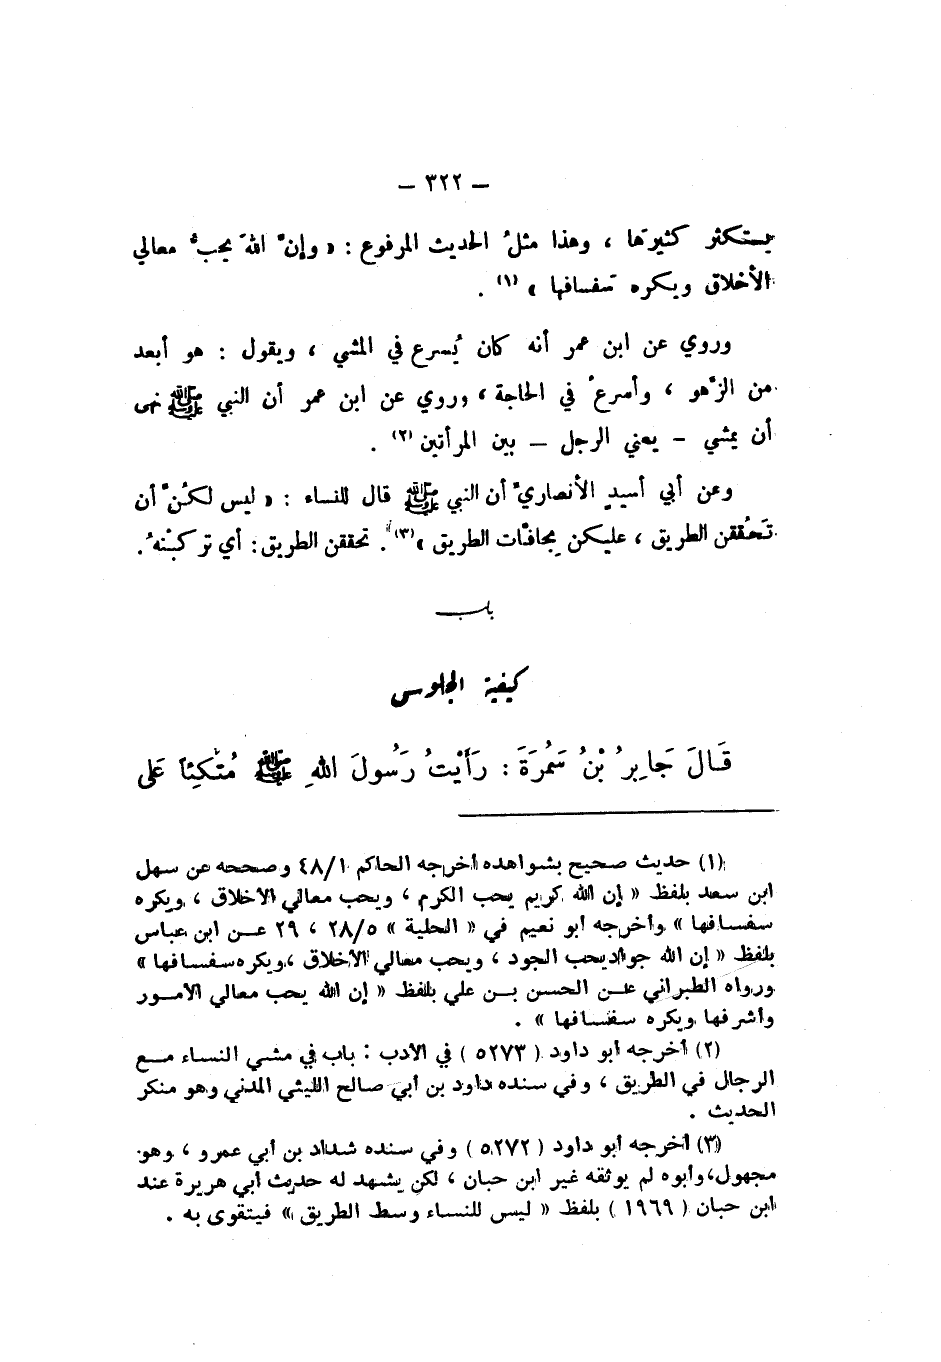 — ٣٢٢ —
يستكثر كثيرَها ، وهذا مثلُ الحديث المرفوع : « وإنّ اللهَ يحبُّ معالي
الأخلاق ويكره سَفسافها » (١) .
وروي عن ابن عمر أنه كان يُسرع في المشي ، ويقول : هو أبعد
من الزَّهو ، وأسرعُ في الحاجة ، وروي عن ابن عمر أن النبي ﷺ نهى
أن يمشي – يعني الرجل – بين المرأتين (٢) .
وعن أبي أسيدٍ الأنصاريّ أن النبي ﷺ قال للنساء : « ليس لكُنّ أن
تَحقُقن الطريق ، عليكن بِحافّات الطريق » (٣) . تحققن الطريق : أي تركبْنهُ .
باب
كيفية الجلوس
قَالَ جَابِرُ بْنُ سَمُرَةَ : رَأَيْتُ رَسُولَ اللهِ ﷺ مُتَّكِئاً عَلى
(١) حديث صحيح بشواهده أخرجه الحاكم ٤٨/١ وصححه عن سهل
ابن سعد بلفظ « إن الله كريم يحب الكرم ، ويحب معالي الأخلاق ، ويكره
سفسافها » وأخرجه أبو نعيم في « الحلية » ٢٨/٥ ، ٢٩ عن ابن عباس
بلفظ « إن الله جواد يحب الجود ، ويحب معالي الأخلاق ، ويكره سفسافها »
ورواه الطبراني عن الحسن بن علي بلفظ « إن الله يحب معالي الأمور
وأشرفها ويكره سفسافها » .
(٢) أخرجه أبو داود ( ٥٢٧٣ ) في الأدب : باب في مشي النساء مع
الرجال في الطريق ، وفي سنده داود بن أبي صالح الليثي المدني وهو منكر
الحديث .
(٣) أخرجه أبو داود ( ٥٢٧٢ ) وفي سنده شداد بن أبي عمرو ، وهو
مجهول ، وأبوه لم يوثقه غير ابن حبان ، لكن يشهد له حديث أبي هريرة عند
ابن حبان ( ١٩٦٩ ) بلفظ « ليس للنساء وسط الطريق » فيتقوى به .